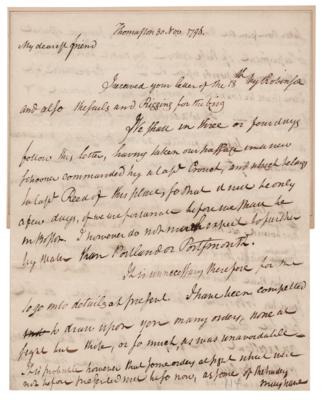 Thomaston 30 Nov. 1796.
My dearest friend
I received your letter of the 18th by Robinson
and also the sails and Rigging for the Brig
We shall in three or four days
follow this letter, having taken our passage in a new
schooner commanded by a Capt and which belongs
to Capt Reed of this place, so that it must be only
a few days, if we are fortunate before we shall be
in Boston. I however do not much expect to further
by water than Portland or Portsmouth.
It is unnecessary therefore for me
to go into details at present. I have been compelled
to draw upon you many orders, none at
sight but three, or so much, as was unavoidable
It is probable however that some orders at sight which were
not before presented may be so now, as some of the
may have